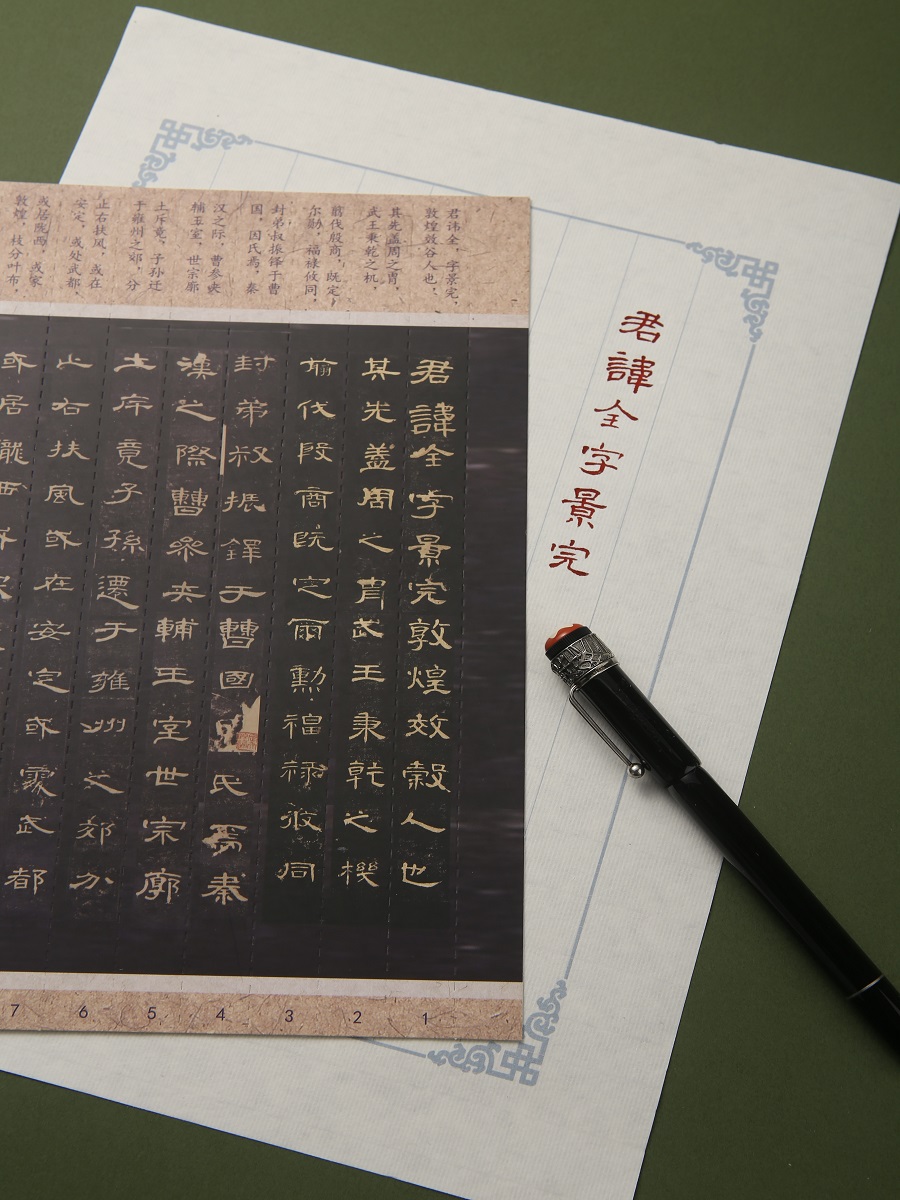 君諱全字景完
君讳全，字景完，
敦煌效谷人也，
其先盖周之胄，
武王秉乾之机，
翦伐殷商，既定
尔勋，福禄攸同，
封弟叔振铎于曹
国，因氏焉，秦
汉之际，曹参夹
辅王室，世宗廓
土斥竟，子孙迁
于雍州之郊，分
止右扶风，或在
安定，或处武都，
或居陇西，或家
敦煌，枝分叶布，
君諱全字景完敦煌效穀人也
其先蓋周之胄武王秉乾之機
翦伐殷商既定爾勳福祿攸同
封弟叔振鐸于曹國因氏焉秦
漢之際曹參夾輔王室世宗廓
土斥竟子孫遷于雍州之郊分
止右扶風或在安定或處武都
或居隴西
7 6 5 4 3 2 1